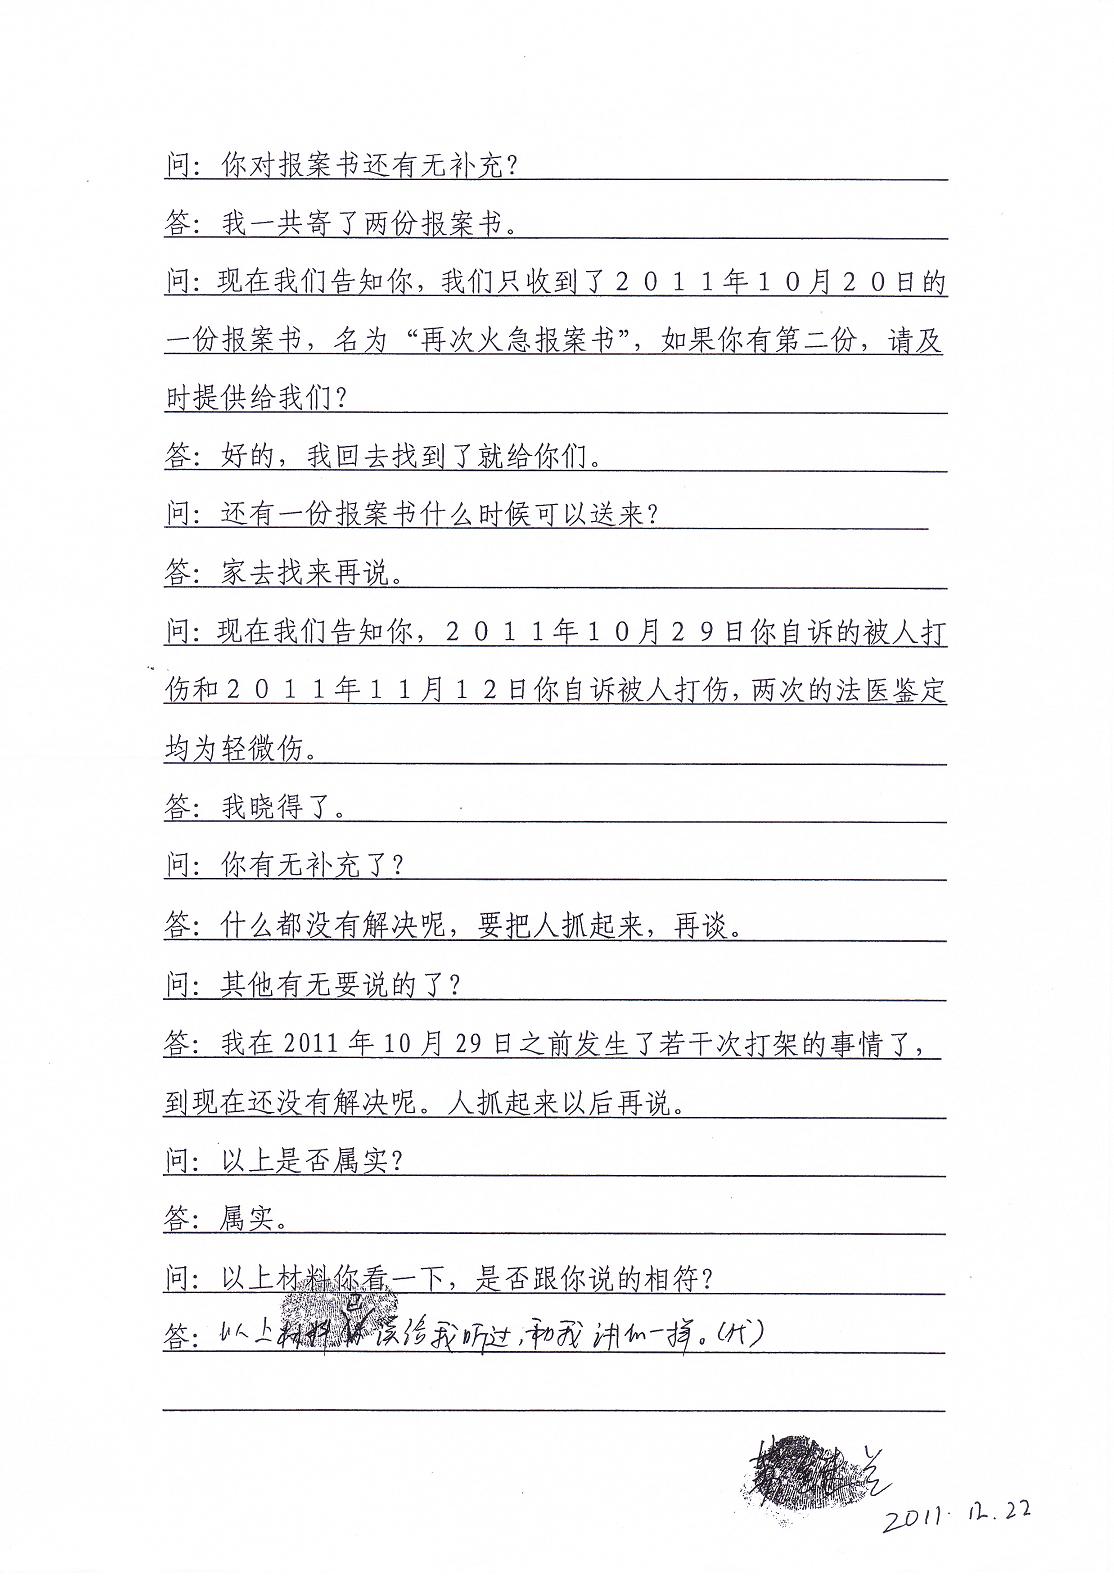 问：你对报案书还有无补充？
答：我一共寄了两份报案书。
问：现在我们告知你，我们只收到了２０１１年１０月２０日的
一份报案书，名为“再次火急报案书”，如果你有第二份，请及
时提供给我们？
答：好的，我回去找到了就给你们。
问：还有一份报案书什么时候可以送来？
答：家去找来再说。
问：现在我们告知你，２０１１年１０月２９日你自诉的被人打
伤和２０１１年１１月１２日你自诉被人打伤，两次的法医鉴定
均为轻微伤。
答：我晓得了。
问：你有无补充了？
答：什么都没有解决呢，要把人抓起来，再谈。
问：其他有无要说的了？
答：我在 2011 年 10 月 29 日之前发生了若干次打架的事情了，
到现在还没有解决呢。人抓起来以后再说。
问：以上是否属实？
答：属实。
问：以上材料你看一下，是否跟你说的相符？
答：以上材料已读给我听过，和我讲的一样。（代）
兰
2011.12.22